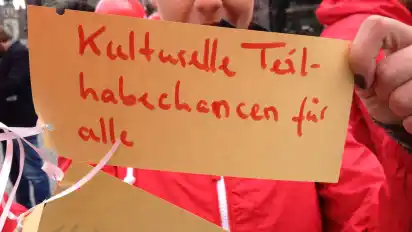 Kulturelle Teil-
habechancen für
alle